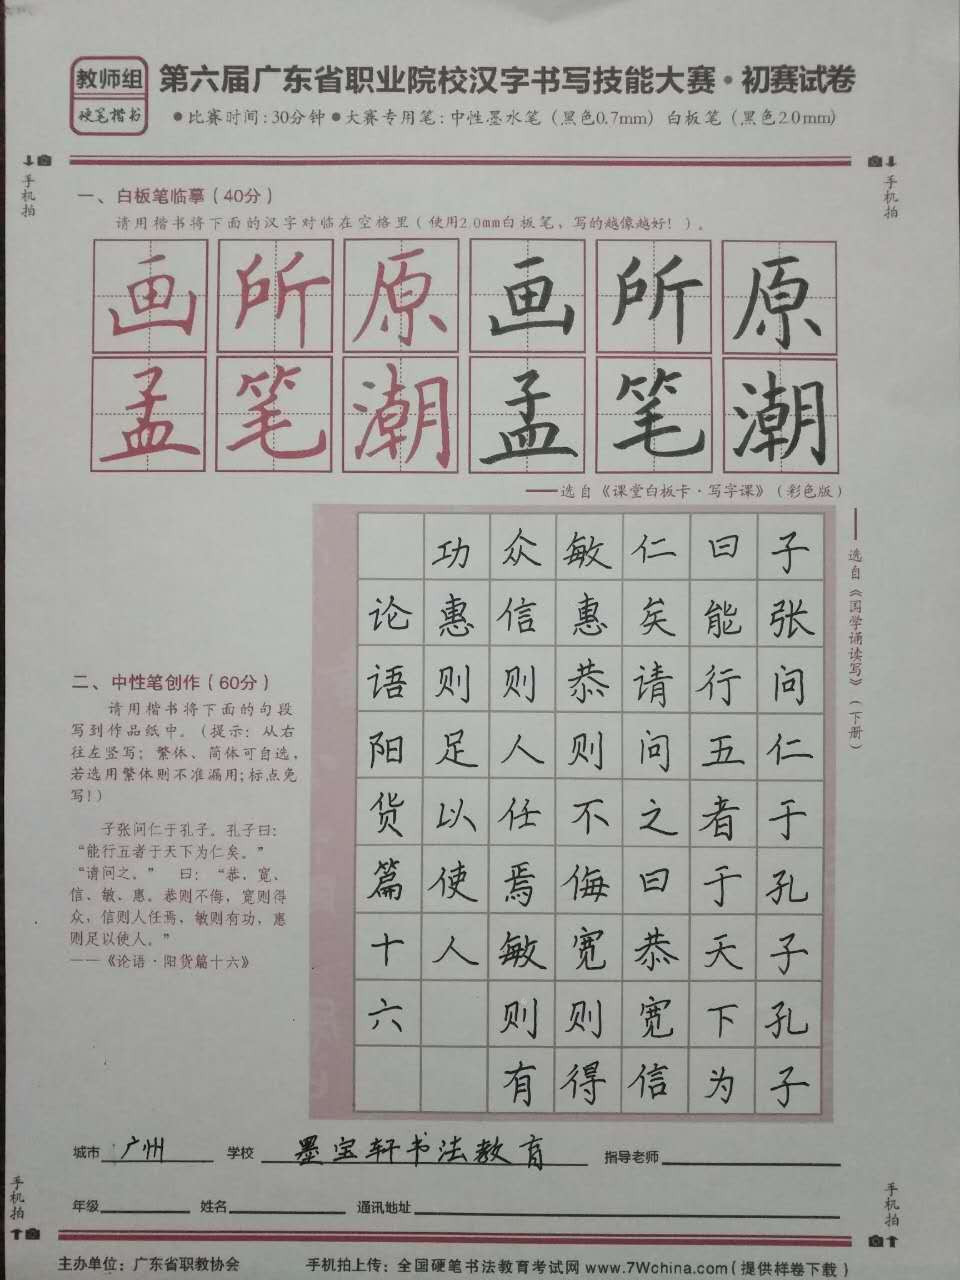 教师组
硬笔楷书
第六届广东省职业院校汉字书写技能大赛·初赛试卷
●比赛时间:30分钟●大赛专用笔:中性墨水笔(黑色0.7mm) 白板笔(黑色2.0mm)
手机拍
手机拍
一、白板笔临摹(40分)
请用楷书将下面的汉字对临在空格里(使用2.0mm白板笔,写的越像越好!)。
画所原画所原
孟笔潮孟笔潮
——选自《课堂白板卡·写字课》(彩色版)
——选自《国学诵读写》(下册)
子张问仁于孔子孔子
曰能行五者于天下为
仁矣请问之曰恭宽信
敏惠恭则不侮宽则得
众信则人任焉敏则有
功惠则足以使人
论语阳货篇十六
二、中性笔创作(60分)
请用楷书将下面的句段
写到作品纸中。(提示:从右
往左竖写;繁体、简体可自选,
若选用繁体则不准漏用;标点免
写!)
子张问仁于孔子。孔子曰:
“能行五者于天下为仁矣。”
“请问之。” 曰:“恭、宽、
信、敏、惠。恭则不侮,宽则得
众,信则人任焉,敏则有功,惠
则足以使人。”
——《论语·阳货篇十六》
城市 广州 学校 墨宝轩书法教育 指导老师
年级 姓名 通讯地址
手机拍
手机拍
主办单位:广东省职教协会 手机拍上传:全国硬笔书法教育考试网 www.7Wchina.com(提供样卷下载)